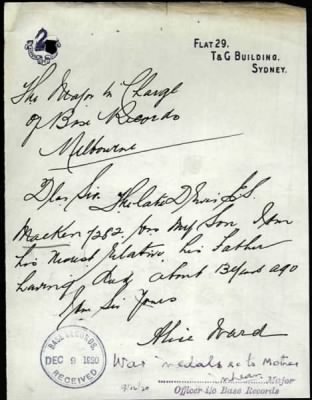 FLAT 29.
T & G BUILDING.
SYDNEY.
The Major In Charge
of Base Records
Melbourne
Dear Sir. The late Driver
Macken 7282 was My Son I am
his nearest Relative, his Father
having died about 13 years ago
I am Sir Yours
Alice Ward
BASE RECORDS.
DEC 9 1920
RECEIVED
War medals as to Mother
Major
Officer i/c Base Records